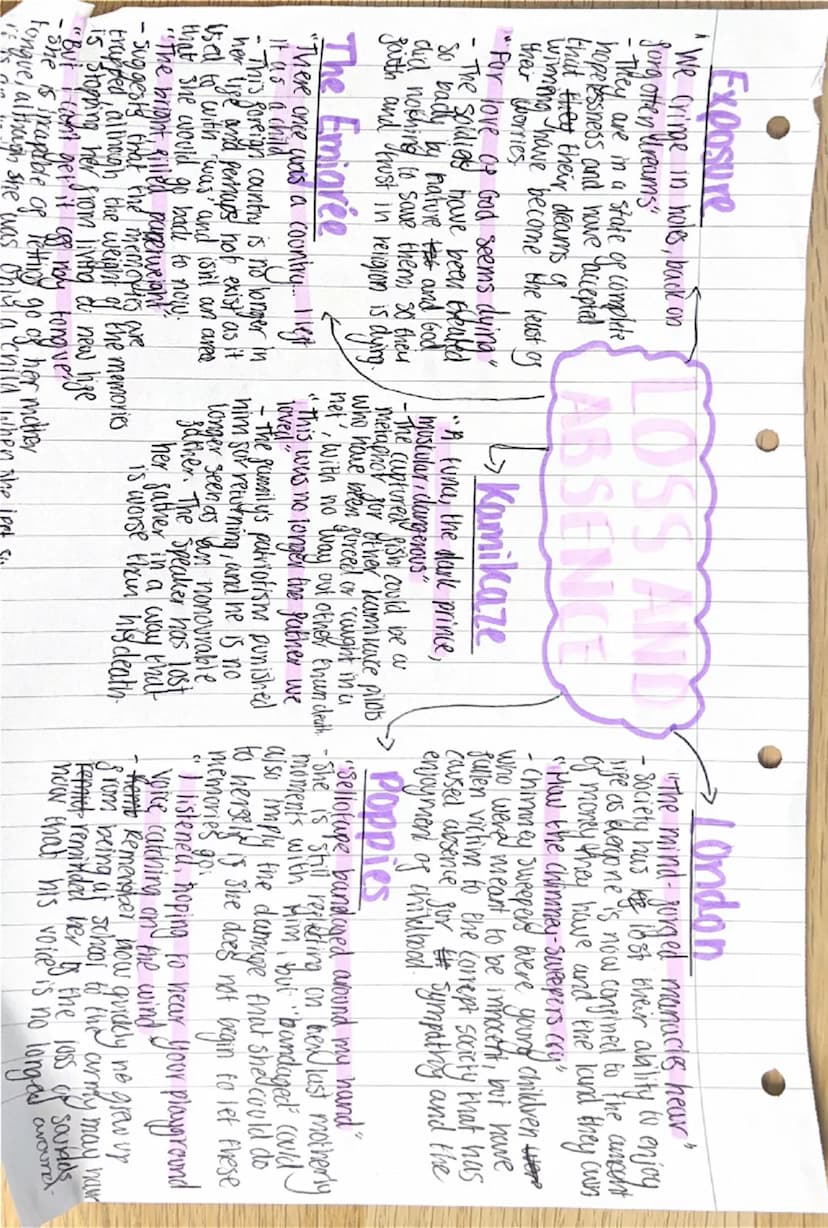 LOSS AND
ABSENCE
Exposure
"We cringe in holes, back on
forgotten dreams"
- They are in a state of complete
hopelessness and have accepted
that they their dreams of
winning have become the least of
their worries.
"For love of God seems dying"
- The soldiers have been
so badly by nature and God
did nothing to save them, so their
faith and trust in religion is dying.
The Emigrée
"There once was a country... I left
it as a child"
- This foreign country is no longer in
her life and perhaps not exist as it
used to with "was" and isn't an area
that she would go back to now.
"The bright, filled paperweight"
- Suggests that the memories are
trapped although the weight of the memories
is stopping her from living a new life
"But I can't get it off my tongue"
- She is incapable of letting go of her mother
tongue although she was only a child when she left
Kamikaze
"A tuna, the dark prince,
muscular, dangerous"
- The captured fish could be a
metaphor for other kamikaze pilots
who have been forced or 'caught in a
net', with no way out other than death.
"This was no longer the father we
loved"
- The family's patriotism punished
him for returning and he is no
longer seen as an honourable
father. The speaker has lost
her father in a way that
is worse than his death.
London
"The mind-forged manacles hear"
- Society has lost their ability to enjoy
life as everyone is now confined to the amount
of money they have and the land they own
"How the chimney-sweepers cry"
- Chimney sweepers were young children
who were meant to be innocent, but have
fallen victim to the corrupt society that has
caused absence for sympathy and the
enjoyment of childhood.
Poppies
"Sellotape bandaged around my hand"
- She is still reflecting on her last motherly
moments with him, but "bandaged" could
also imply the damage that she could do
to herself if she does not begin to let these
memories go.
"I listened, hoping to hear your playground
voice catching on the wind"
- Remember how quickly he grew up
from being at school to the army may have
reminded her of the loss of sounds
now that his voice is no longer around.